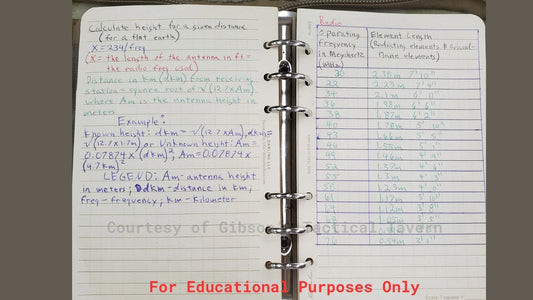 Calculate height for a given distance
(for a flat earth)
X = 234/freq
(X = the length of the antenna in ft =
the radio freq used)
Distance in Km (dkm) from receiving
station = square root of √(12.7xAm)
where Am is the antenna height in
meters
Example:
Known height: dkm = √(12.7xAm), dkm =
√(12.7x1.7m) or Unknown height: Am =
0.07874 x (dkm)², Am = 0.07874 x
(4.7km)²
LEGEND: Am - antenna height
in meters; Ddkm - distance in km,
freq - frequency; km - Kilometer
Radio
Operating
Frequency
in Megahertz
(MHz)
Element Length
(Radiating elements & Ground-
Plane elements)
30 2.38m 7' 10"
32 2.23m 7' 4"
34 2.1m 6' 11"
36 1.98m 6' 6"
38 1.87m 6' 2"
40 1.78m 5' 10"
43 1.66m 5' 5"
46 1.55m 5' 1"
49 1.46m 4' 9"
52 1.37m 4' 6"
55 1.3m 4' 3"
58 1.23m 4' 0"
61 1.17m 3' 10"
64 1.12m 3' 8"
1.05m 3' 5"
76 0.94m 3' 1"
Courtesy of Gibson Tactical Tavern
For Educational Purposes Only